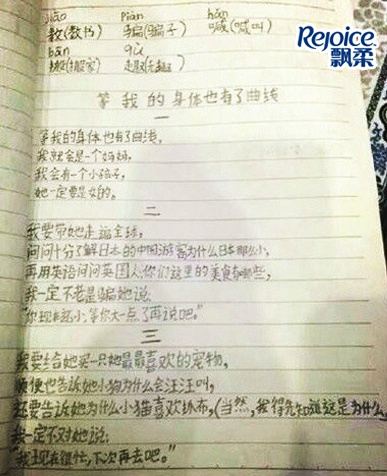 jiāo piàn hǎn
教(教书) 骗(骗子) 喊(喊叫)
bān qù
搬(搬家) 趣(无趣)
Rejoice
飘柔
等我的身体也有了曲线
一
等我的身体也有了曲线,
我就会是一个妈妈,
我会有一个小孩子,
她一定要是女的。
二
我要带她走遍全球,
问问十分了解日本的中国游客为什么日本那么小,
再用英语问问英国人你们这里的美食有哪些,
我一定不老是骗她说:
"你现在还小,等你大一点了再说吧。"
三
我要给她买一只她最最喜欢的宠物,
顺便也告诉她小狗为什么会汪汪叫,
还要告诉她为什么小猫喜欢抓布,(当然,我得先知道这是为什么)
我一定不对她说:
"我现在很忙,下次再去吧。"